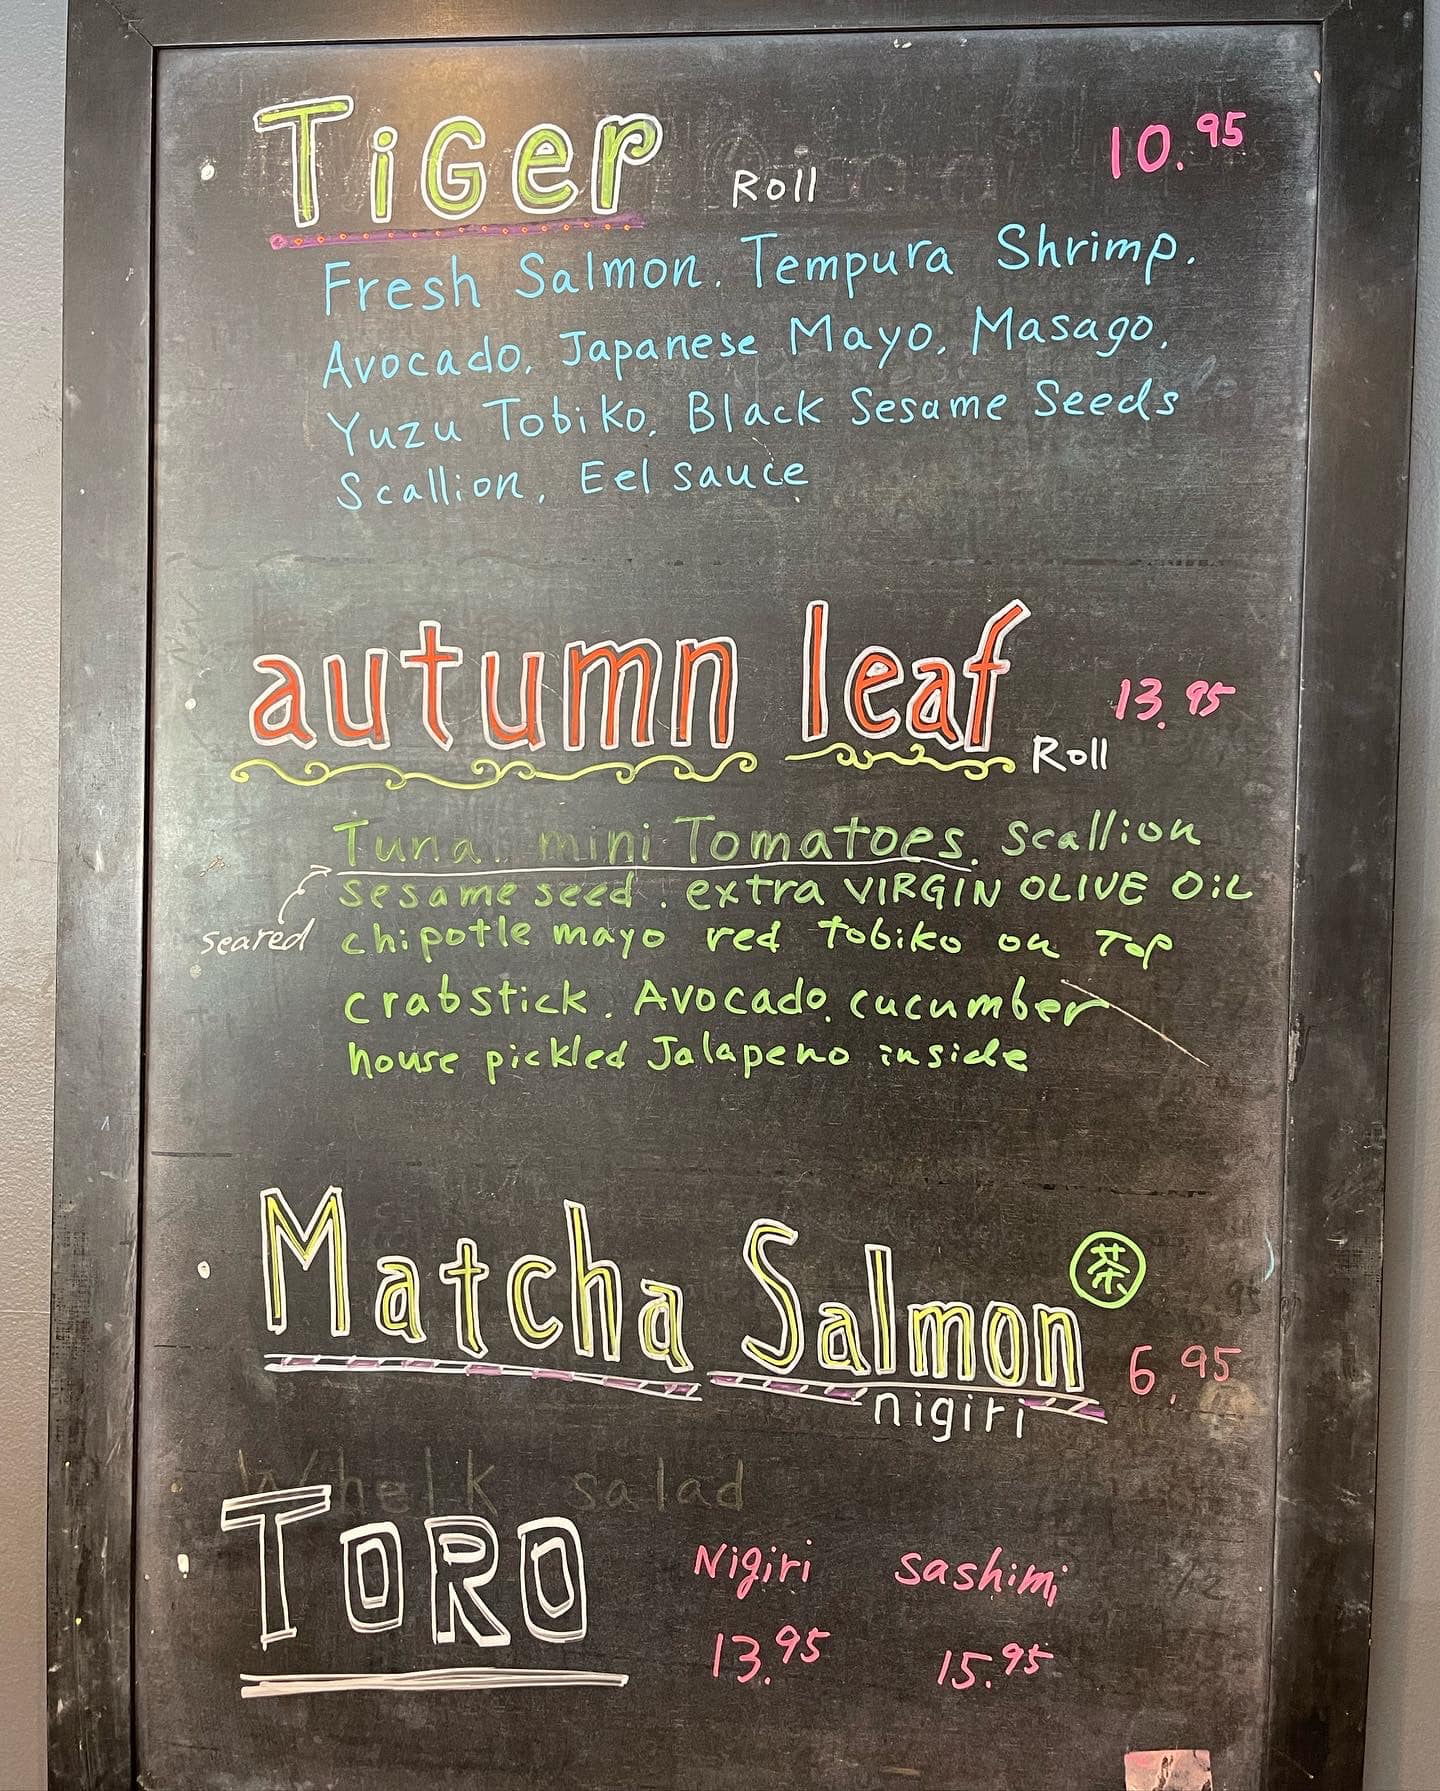 Tiger Roll 10.95
Fresh Salmon. Tempura Shrimp.
Avocado, Japanese Mayo, Masago,
Yuzu Tobiko, Black Sesame Seeds
Scallion, Eel sauce
autumn leaf Roll 13.95
Tuna. mini Tomatoes. scallion
sesame seed. extra VIRGIN OLIVE OiL
seared chipotle mayo red tobiko on Top
crabstick. Avocado. cucumber
house pickled Jalapeno inside
Matcha Salmon 茶
nigiri 6.95
Whelk salad
TORO Nigiri sashimi
13.95 15.95